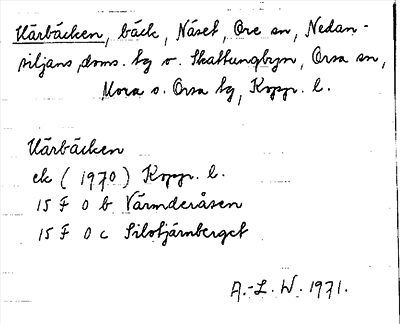 Kärbäcken, bäck, Näset, Ore sn, Nedan-
siljans doms. tg o. Skattungbyn, Orsa sn,
Mora o. Orsa tg, Kopp. l.
Kärbäcken
ek (1970) Kopp. l.
15 F 0 b Värmderåsen
15 F 0 c Silotjärnberget
A.-L. W. 1971.